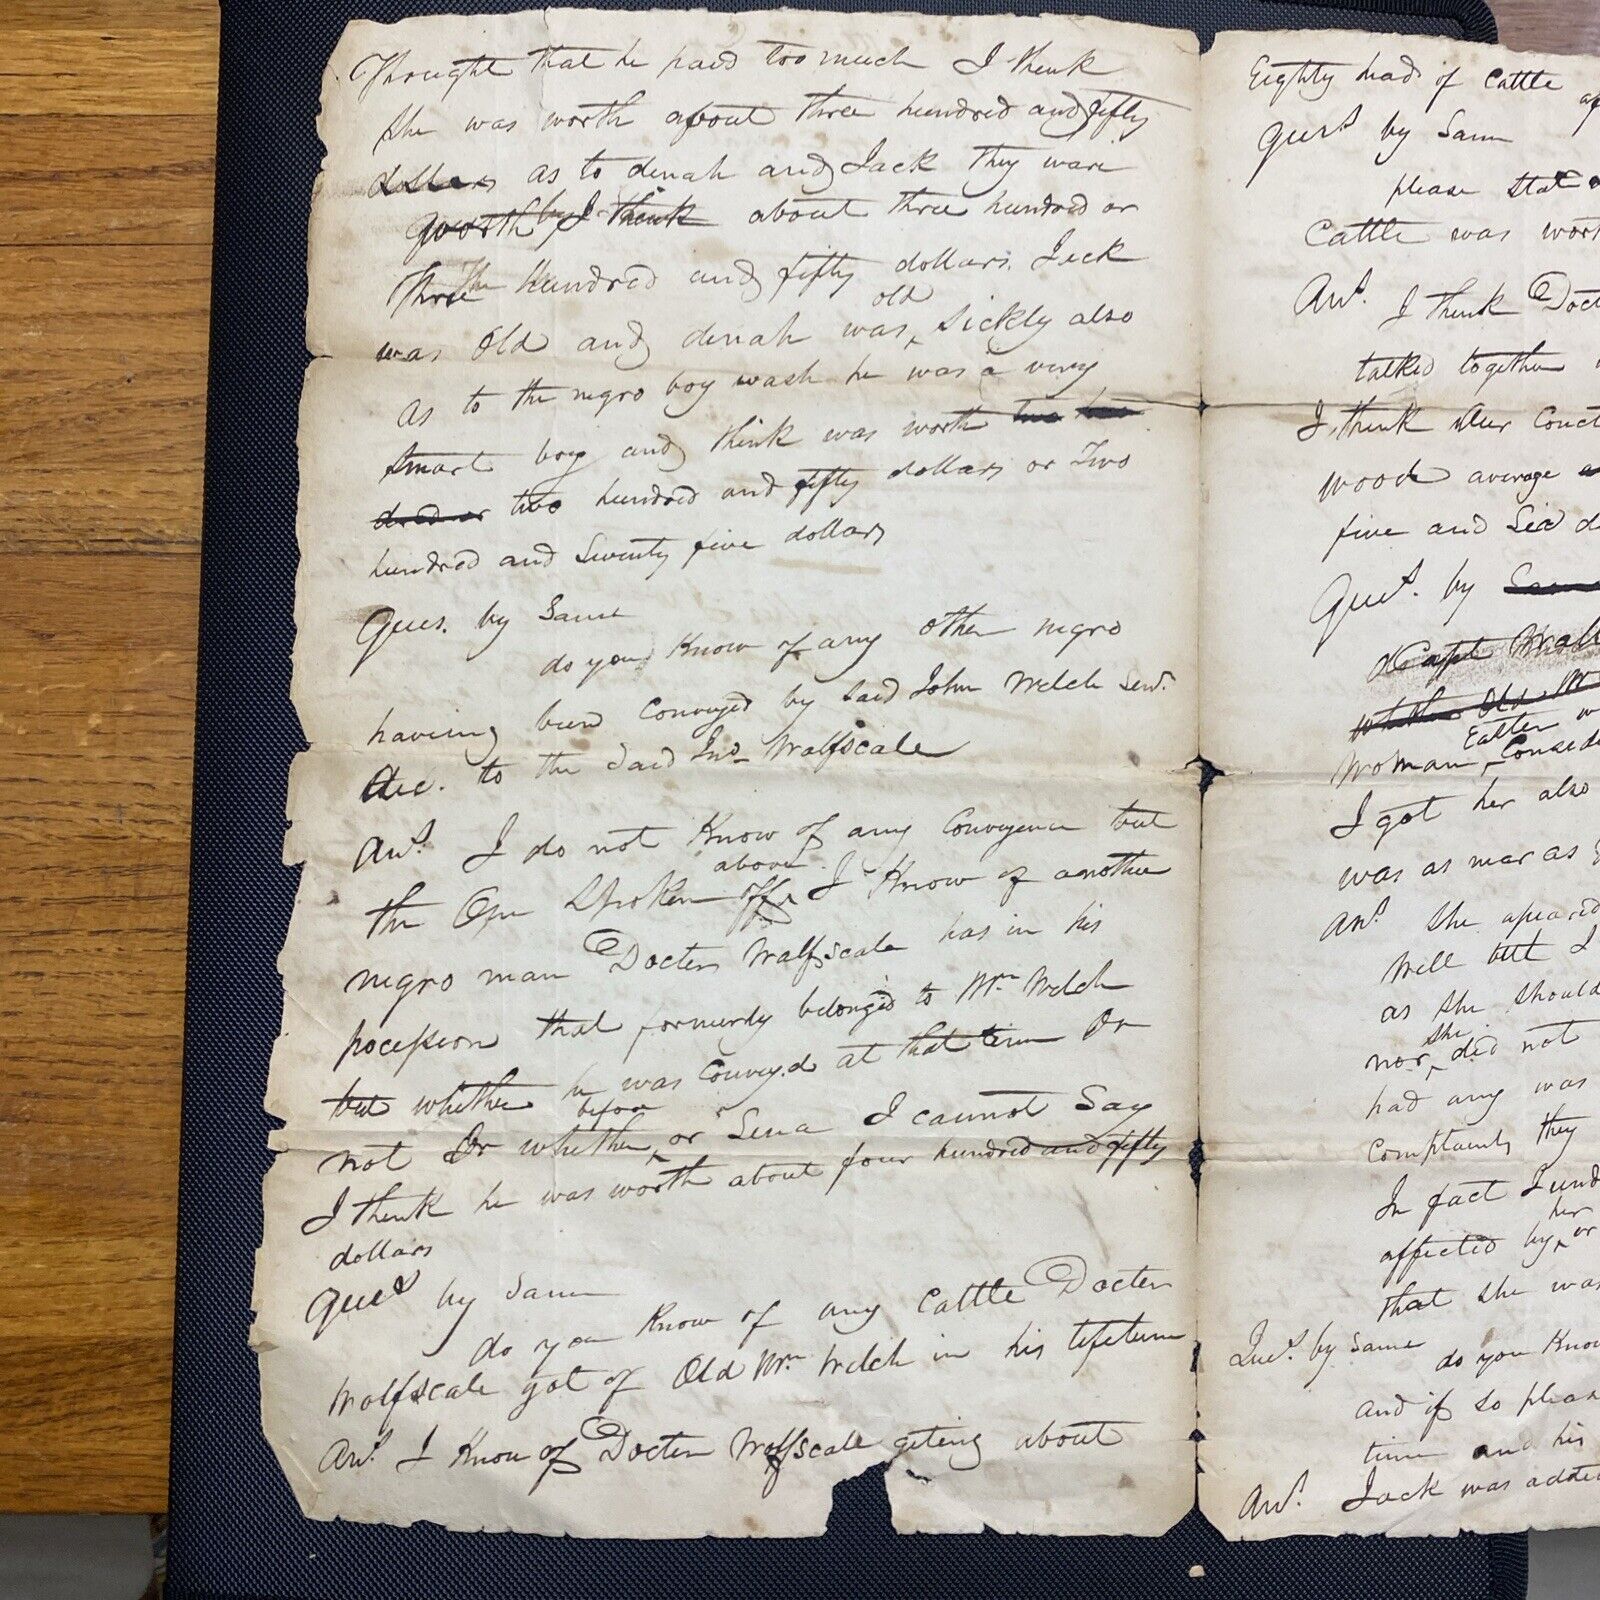 Thought that he paid too much I think
she was worth about three hundred and fifty
dollars as to denah and Jack they ware
worth by I think about three hundred or
Three hundred and fifty dollars. Jack
was Old and denah was old sickly also
as to the negro boy wash he was a very
smart boy and think was worth two hun
dred or two hundred and fifty dollars or Two
hundred and Seventy five dollars
Ques. by Same
do you Know of any other negro
having been Conveyed by said John Welch Senr.
Dec. to the said Jno Walfscale
Ans. I do not Know of any Conveyence but
the One Spoken off above I Know of another
negro man Docter Walfscale has in his
pocession that formerly belonged to Mr. Welch
but whether he was Conveyed at that time Or
not Or whether before or Sence I cannot Say
I think he was worth about four hundred and fifty
dollars
Ques by Same
do you Know of any Cattle Docter
Walfscale got of Old Mr. Welch in his lifetime
Ans. I Know of Docter Walfscale geting about
Eighty head of Cattle
Quest by Same
please state
Cattle was wor
Ans. I think Doct
talked together
I think Our Conc
wood average
five and Six d
Quest. by Same
Capt Walf
whether Old
Woman Easter Conside
I got her also
was as near as
Ans. She apeared
Well but I
as she should
nor she did not
had any was
Complaints they
In fact I und
affected by her or
that she was
Quest. by Same do you Know
and if so pleas
time and his
Ans. Jack was adde